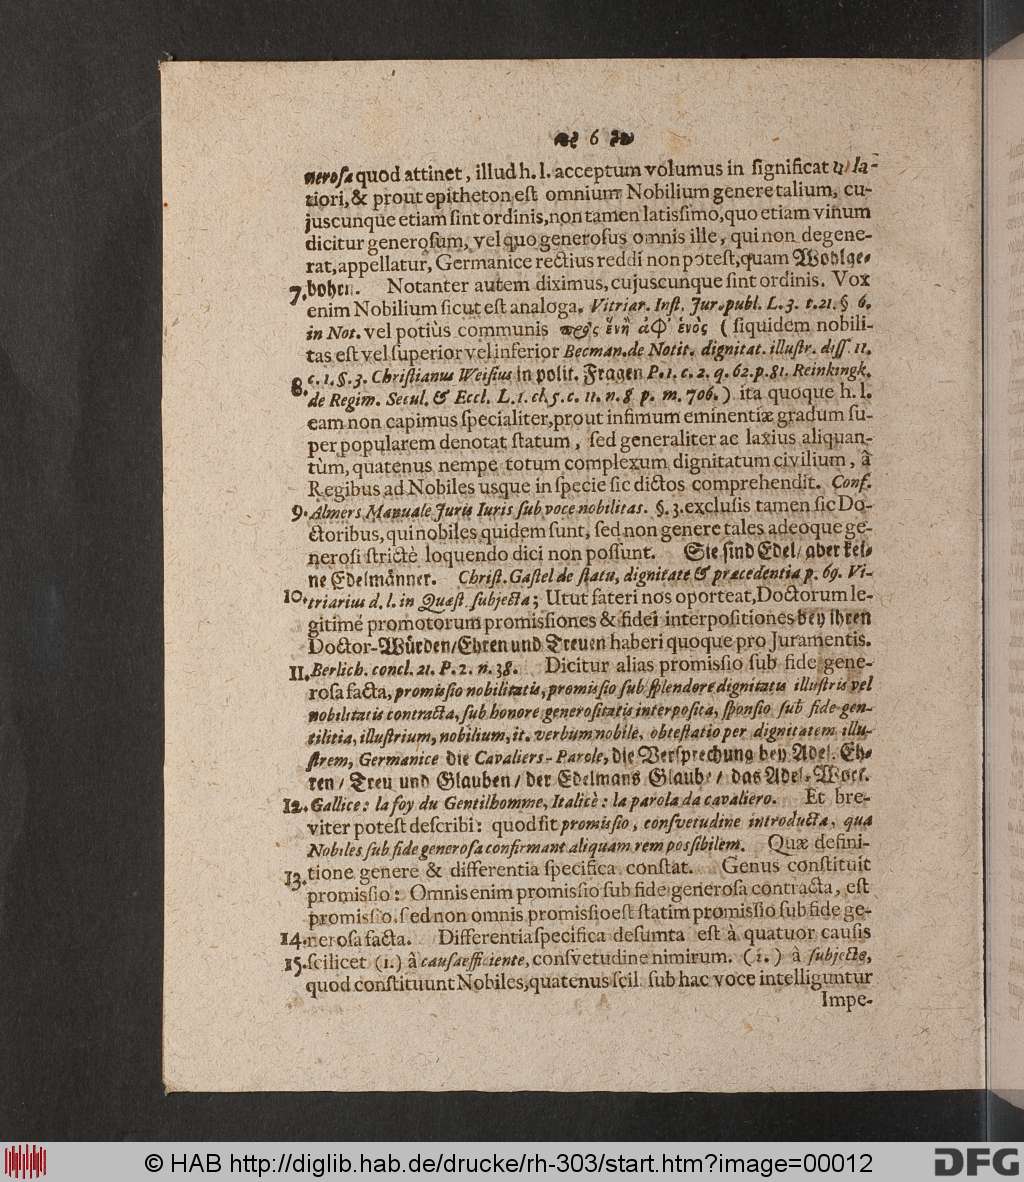 6
nerosa quod attinet, illud h. l. acceptum volumus in significatu la-
tiori, & prout epitheton est omnium Nobilium genere talium, cu-
juscunque etiam sint ordinis, non tamen latissimo, quo etiam vinum
dicitur generosum, vel quo generosus omnis ille, qui non degene-
rat, appellatur, Germanice rectius reddi non potest, quam Wohlge-
7. bohen. Notanter autem diximus, cujuscunque sint ordinis. Vox
enim Nobilium sicut est analoga. Vitriar. Inst. Jur. publ. L. 3. t. 21. § 6.
in Not. vel potiùs communis πρὸς ἕνη ἀφ' ἑνὸς (siquidem nobili-
tas est vel superior vel inferior Becman. de Notit. dignitat. illustr. diss. 11.
8. c. 1. §. 3. Christianus Weisius in polit. Fragen P. 1. c. 2. q. 62. p. 81. Reinkingk.
de Regim. Secul. & Eccl. L. 1. cl. 5. c. 11. n. 8 p. m. 706.) ita quoque h. l.
eam non capimus specialiter, prout infimum eminentiæ gradum su-
per popularem denotat statum, sed generaliter ac laxius aliquan-
tùm, quatenus nempe totum complexum dignitatum civilium, â
Regibus ad Nobiles usque in specie sic dictos comprehendit. Conf.
9. Almers Manuale Juris Iuris sub voce nobilitas. §. 3. exclusis tamen sic Do-
ctoribus, qui nobiles quidem sunt, sed non genere tales adeoque ge-
nerosi strictè loquendo dici non possunt. Sie sind Edel/ aber kei-
ne Edelmänner. Christ. Gastel de statu, dignitate & præcedentia p. 69. Vi-
10. triarius d. l. in Quæst. subjecta; Utut fateri nos oporteat, Doctorum le-
gitimè promotorum promissiones & fidei interpositiones bey ihren
Doctor-Würden/ Ehren und Treuen haberi quoque pro Juramentis.
11. Berlich. concl. 21. P. 2. n. 38. Dicitur alias promissio sub fide gene-
rosa facta, promissio nobilitatis, promissio sub splendore dignitatis illustris vel
nobilitatis contracta, sub honore generositatis interposita, sponsio sub fide gen-
tilitia, illustrium, nobilium, it. verbum nobile, obtestatio per dignitatem illu-
strem, Germanice die Cavaliers-Parole, die Versprechung bey Adel. Eh-
ren/ Treu und Glauben/ der Edelmans Glaube/ das Adel-Wort.
12. Gallice: la foy du Gentilhomme, Italicè: la parola da cavaliero. Et bre-
viter potest describi: quod fit promissio, consvetudine introducta, qua
Nobiles sub fide generosa confirmant aliquam rem possibilem. Quæ defini-
tione genere & differentia specifica constat. Genus constituit
13. promissio: Omnis enim promissio sub fide generosa contracta, est
promissio, sed non omnis promissio est statim promissio sub fide ge-
14. nerosa facta. Differentia specifica desumta est à quatuor causis
15. scilicet (1.) à causa efficiente, consvetudine nimirum. (2.) à subjecto,
quod constituunt Nobiles, quatenus scil. sub hac voce intelliguntur
Impe-
© HAB http://diglib.hab.de/drucke/rh-303/start.htm?image=00012
DFG